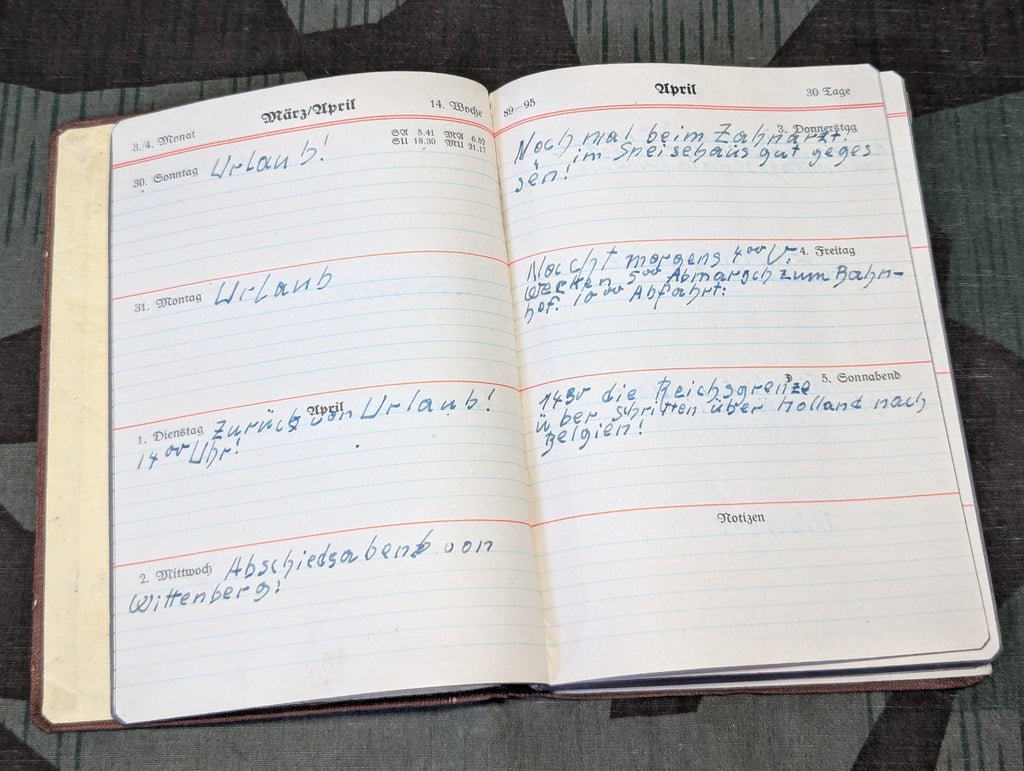 März/April
3./4. Monat
14. Woche
SA 5.41 MA 6.52
SU 18.30 MU 21.17
30. Sonntag Urlaub!
31. Montag Urlaub
April
1. Dienstag Zurück von Urlaub!
14 00 Uhr!
2. Mittwoch Abschiedsabend von
Wittenberg!
89—95
April
30 Tage
3. Donnerstag
Noch mal beim Zahnarzt.
im Speisehaus gut geges
sen!
4. Freitag
morgens 4 00 U.
Wecken 5 00 Abmarsch zum Bahn-
hof. 10 00 Abfahrt:
5. Sonnabend
14 30 die Reichsgrenze
über schritten über Holland nach
Belgien!
Notizen